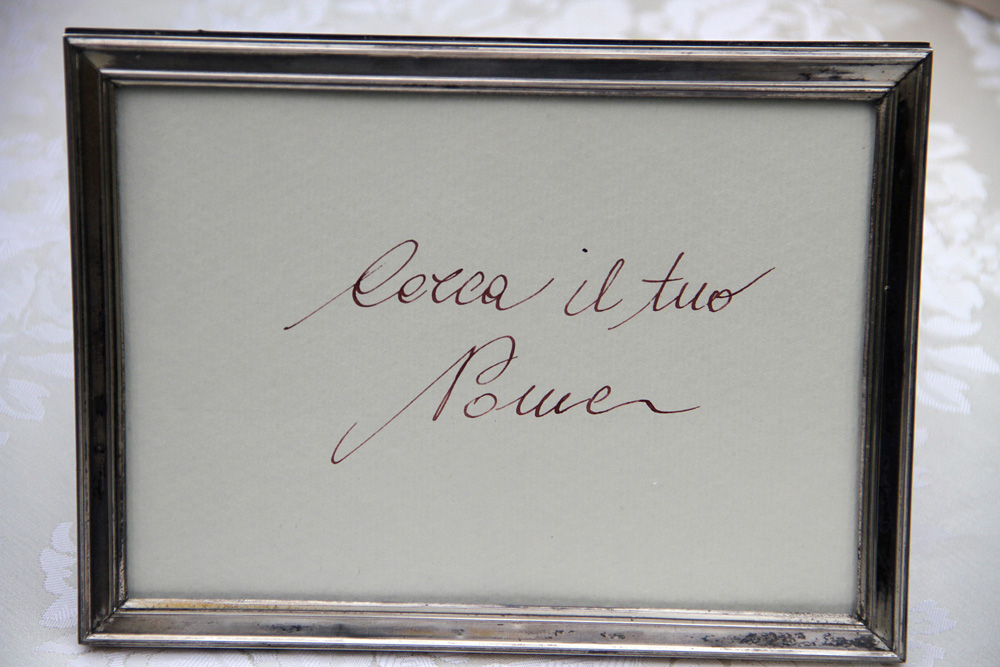 Cerca il tuo
Nome